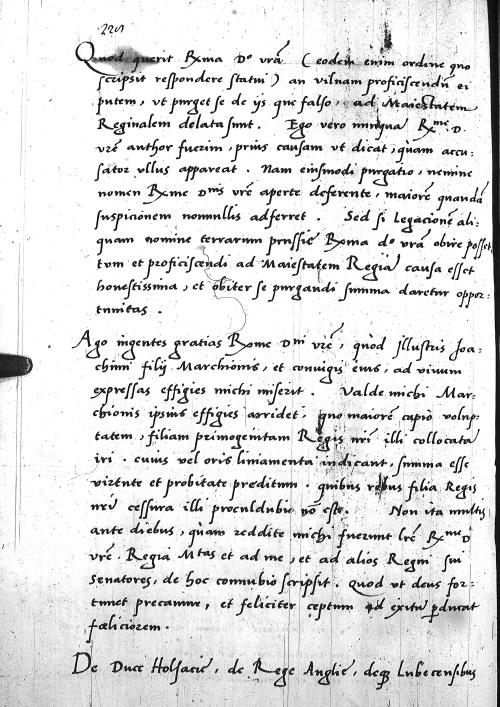 Quod querit Rxma Do vrã (eodem enim ordine quo
scripsit respondere statui) an vilnam proficiscendũ ei
putem, vt purget se de ijs que falso, ad Maiestatem
Reginalem delata sunt. Ego vero nunqua Rxme D.
vrẽ author fuerim, prius causam vt dicat, quàm accu:
sator vllus appareat. Nam eiusmodi purgatio, nemine
nomen Rxme Dnis vrẽ aperte deferente, maiorẽ quandã
suspicionem nonnullis adferret. Sed si Legationẽ ali:
quam nomine terrarum prussiẽ Rxma do vrã obire posset,
tum et proficiscendi ad Maiestatem Regiã causa esset
honestissima, et obiter se purgandi summa daretur oppor:
tunitas.
Ago ingentes gratias Rxme Dni vrẽ, quòd Illustris Joa:
chimi filij Marchionis, et coniugis eius, ad viuum
expressas effigies michi miserit. Valde michi Mar:
chionis ipsius effigies arridet, quo maiorẽ capio volup:
tatem, filiam primogenitam Regis nri illi collocatã
iri. cuius vel oris liniamenta indicant, summa esse
virtute et probitate preditum. quibus rebus filia Regis
nri cessura illi proculdubio nõ est. Non ita multis
ante diebus, quàm reddite michi fuerunt lrẽ Rxme D
vrẽ. Regia Mtas et ad me, et ad alios Regni sui
senatores, de hoc connubio scripsit. Quod vt deus for:
tunet precamur, et feliciter ceptum ad exitũ perducat
fæliciorem.
De Duce Holsacie, de Rege Anglie, deq Lubecensibus